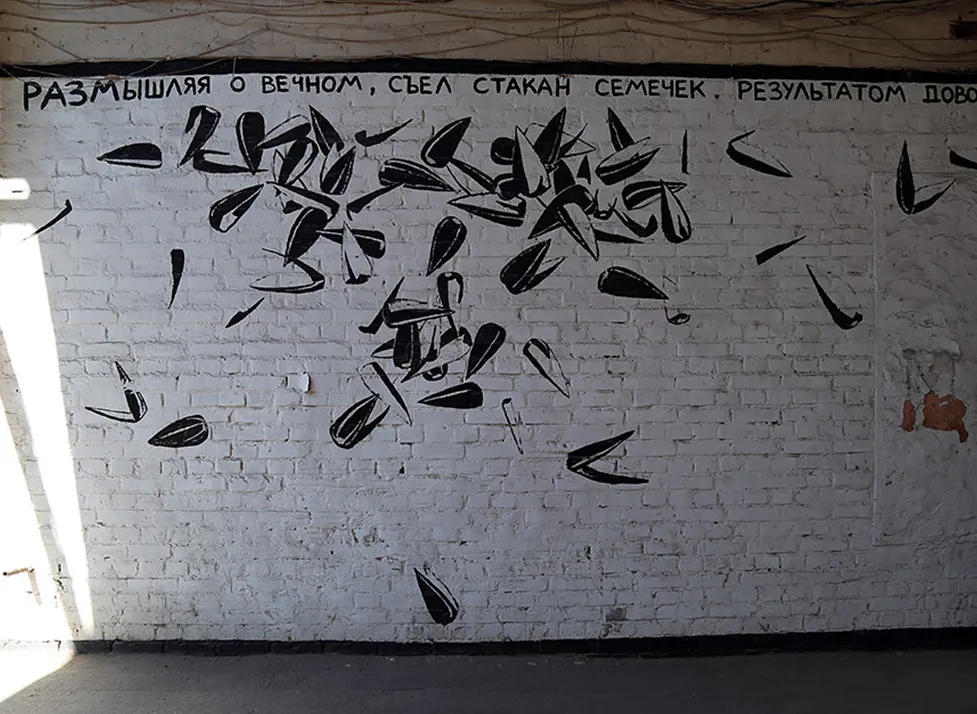 РАЗМЫШЛЯЯ О ВЕЧНОМ, СЪЕЛ СТАКАН СЕМЕЧЕК. РЕЗУЛЬТАТОМ ДОВО